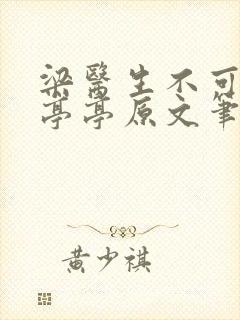 梁醫生不可
亭亭原文筆
黄少祺